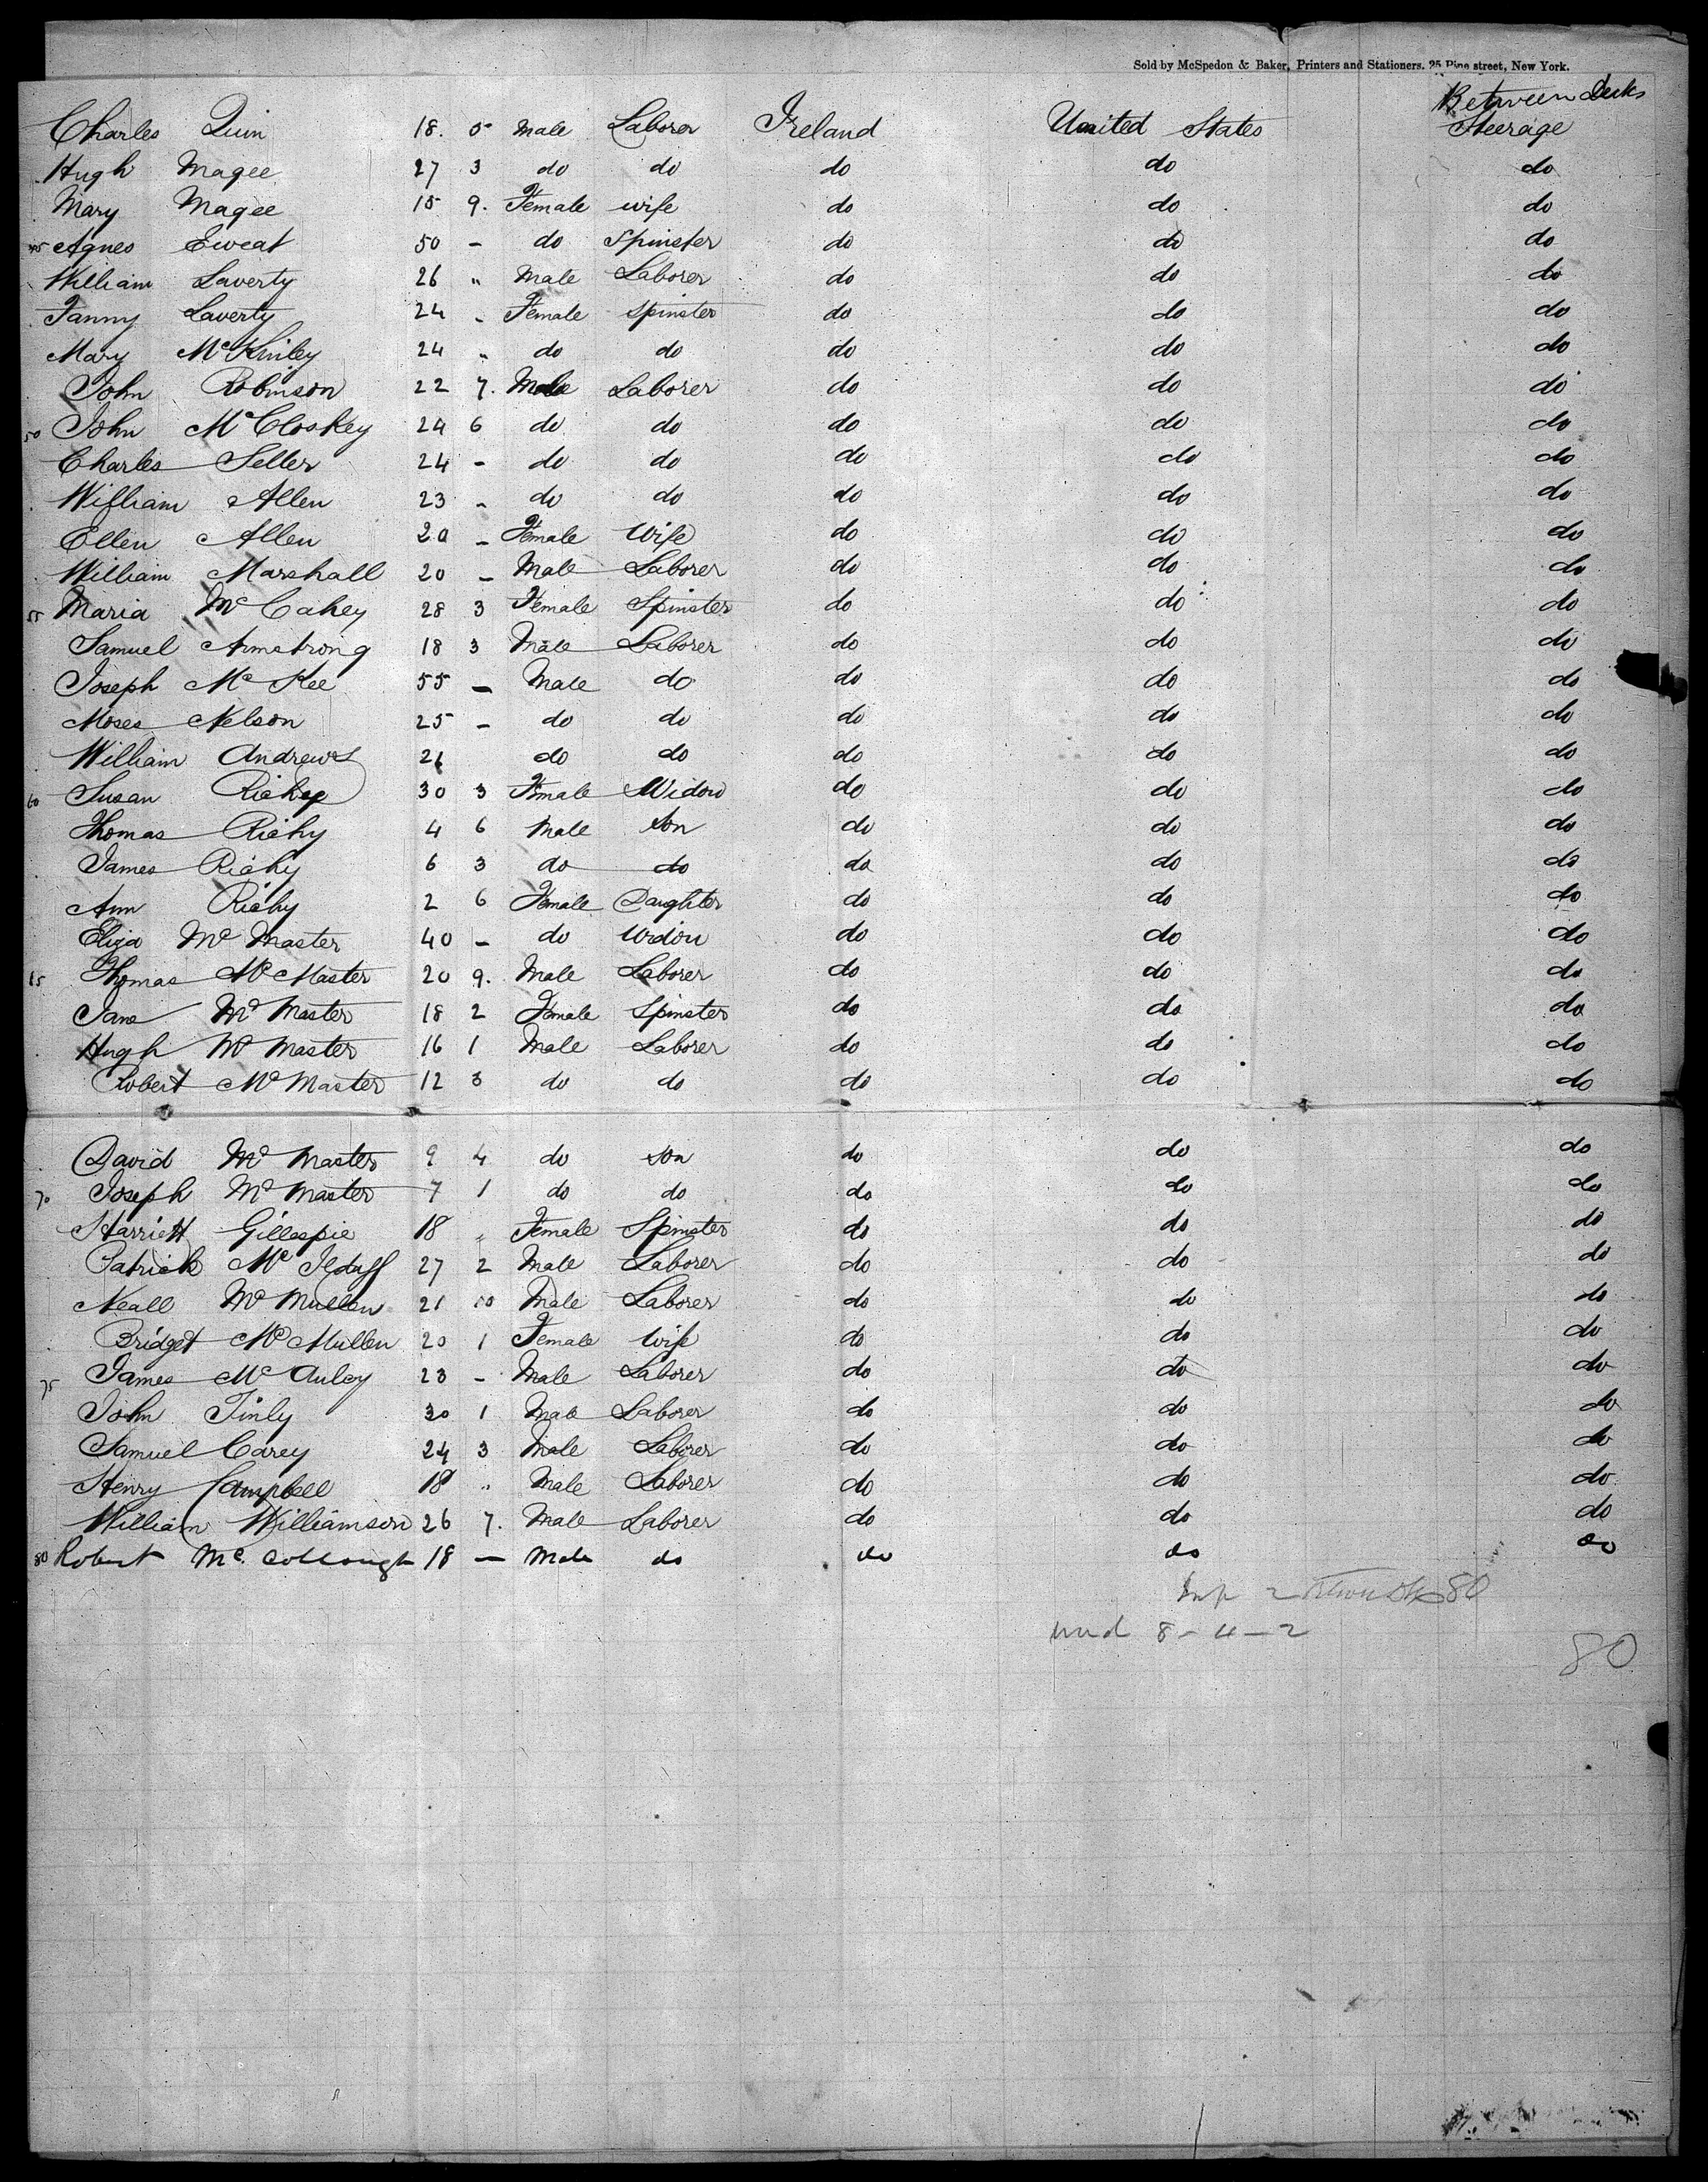 Sold by McSpedon & Baker, Printers and Stationers. 25 Pine street, New York.
Between Decks
Charles Quin 18. 5 Male Laborer Ireland United States Steerage
Hugh Magee 27 3 do do do do do
Mary Magee 18 9. Female wife do do do
45 Agnes Eweat 50 – do Spinster do do do
William Laverty 26 " Male Laborer do do do
Fanny Laverty 24 - Female Spinster do do do
Mary McKinley 24 " do do do do do
John Robinson 22 7. Male Laborer do do do
50 John McCloskey 24 6 do do do do do
Charles Seller 24 - do do do do do
William Allen 23 - do do do do do
Ellen Allen 20 - Female Wife do do do
William Marshall 20 - Male Laborer do do do
55 Maria McCahey 28 3 Female Spinster do do do
Samuel Armstrong 18 3 Male Laborer do do do
Joseph McKee 55 – Male do do do do
Moses Nelson 25 – do do do do do
William Andrews 21 do do do do do
60 Susan Richey 30 3 Female Widow do do do
Thomas Richy 4 6 Male Son do do do
James Richy 6 3 do do do do do
Ann Richy 2 6 Female Daughter do do do
Eliza McMaster 40 – do Widow do do do
65 Thomas McMaster 20 9. Male Laborer do do do
Jane McMaster 18 2 Female Spinster do do do
Hugh McMaster 16 1 Male Laborer do do do
Robert McMaster 12 3 do do do do do
David McMaster 9 4 do Son do do do
70 Joseph McMaster 7 1 do do do do do
Harriett Gillespie 18 " Female Spinster do do do
Patrick McIlduff 27 2 Male Laborer do do do
Neall McMullen 21 10 Male Laborer do do do
Bridget McMullen 20 1 Female Wife do do do
75 James McAuley 23 – Male Laborer do do do
John Finly 30 1 Male Laborer do do do
Samuel Carey 24 3 Male Laborer do do do
Henry Campbell 18 " Male Laborer do do do
William Williamson 26 7. Male Laborer do do do
80 Robert Mc.Collough 18 – Male do do do do
80
8 – 4 – 2
80